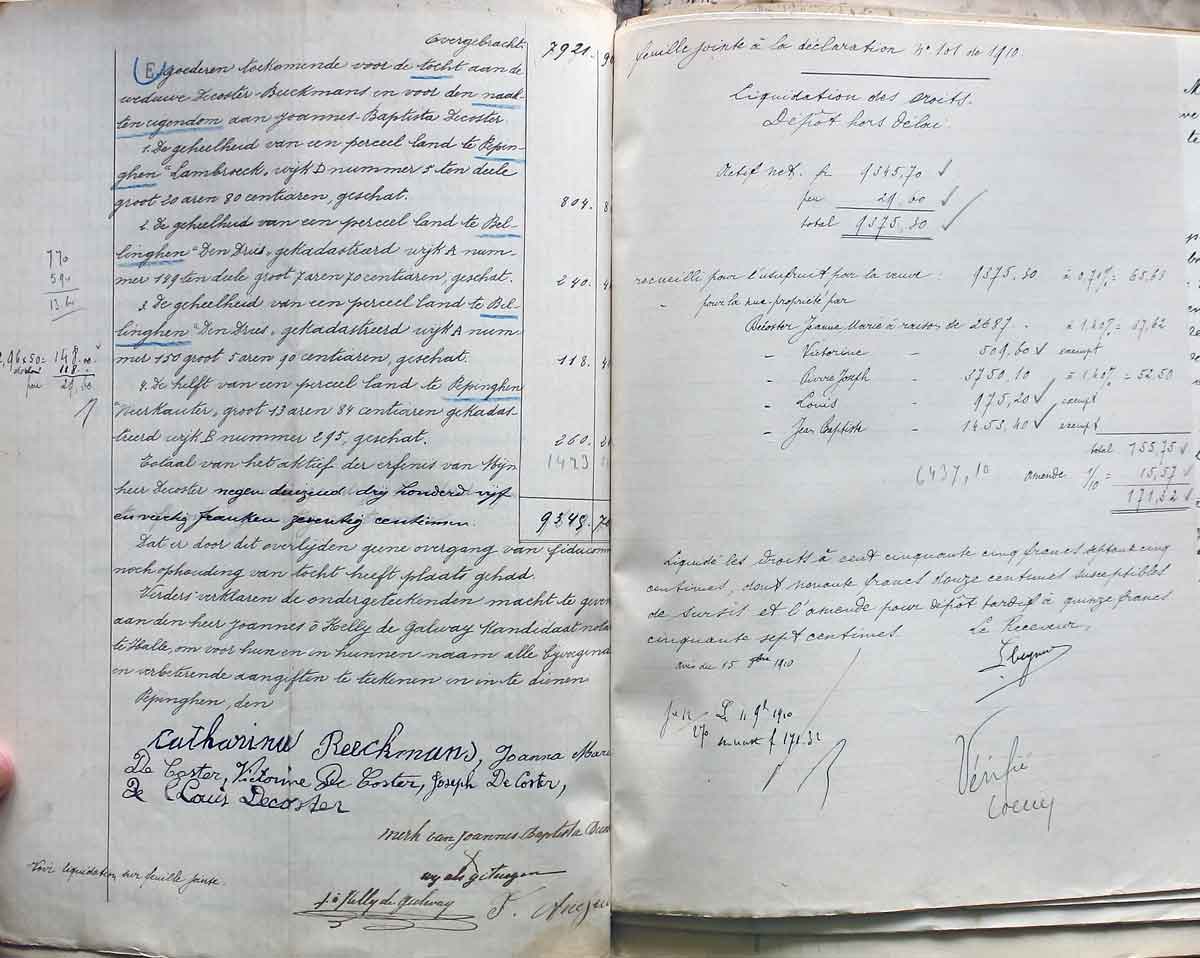 Overgebracht. 7921. 90
E, goederen toekomende voor de tocht aan de
weduwe Decoster-Beeckmans en voor den naak-
ten eigendom aan Joannes-Baptista Decoster.
1. De geheelheid van een perceel land te Pepin-
ghen "Lambroeck, wijk D nummer 5 ten deele
groot 20 aren 80 centiaren, geschat. 804. 8
2. De geheelheid van een perceel land te Bel-
linghen "Den Dries, gekadastreerd wijk A num-
mer 189 ten deele groot 7 aren 70 centiaren, geschat. 240. 4
3. De geheelheid van een perceel land te Bel-
linghen "Den Dries, gekadastreerd wijk A num-
mer 150 groot 5 aren 90 centiaren, geschat. 118. 4
4. De helft van een perceel land te Pepinghen
"Veerkauter, groot 13 aren 84 centiaren gekadas-
treerd wijk B nummer 295, geschat. 260. 2
Totaal van het aktief der erfenis van Mijn 1423
heer Decoster negen duizend drij honderd vijf
en veertig franken zeventig centimen. 9345. 70
Dat er door dit overlijden geene overgang van fiducom
noch ophouding van tocht heeft plaats gehad.
Verders verklaren de ondergeteekenden macht te geven
aan den heer Joannes ô Kelly de Galway Kandidaat nota
te Halle, om voor hun en in hunnen naam alle bijvoegend
en verbeterende aangiften te teekenen en in te dienen
Pepinghen, den
Catharina Beeckmans, Joanna Mari
De Coster, Victorine De Coster, Joseph De Coster,
De Louis Decoster
merk van Joannes Baptista Deco
X
wy als getuigen
J ô Kelly de Galway
Voir liquidation sur feuille jointe.
770
590
13.6
2,96 x 50 = 148.00
118.
21.60
feuille jointe à la déclaration n° 101 de 1910.
Liquidation des droits.
Dépôt hors délai.
Actif net. fr 9345,70
peu 29.60
total 9375,30
recueille pour l'usufruit par la veuve: 9375.30 à 0.70% = 65,63
" pour la nue-propriété par
Decoster Jeanne Marie à raison de 2687. à 1.40% = 37,62
- Victorine - 509,60 exempt
- Pierre Joseph - 3750,10 à 1.40% = 52,50
- Louis - 975,20 exempt
- Jean Baptiste - 1453,40 exempt
total 155,75
6437,10 amende 1/10 = 15,57
171,32
Liquidé les droits à cent cinquante cinq francs septante cinq
centimes, dont nonante francs douze centimes susceptibles
de sursis et l'amende pour dépôt tardif à quinze francs
cinquante sept centimes. Le Receveur,
avis du 15 9bre 1910
270
f 171.32
Vérifié